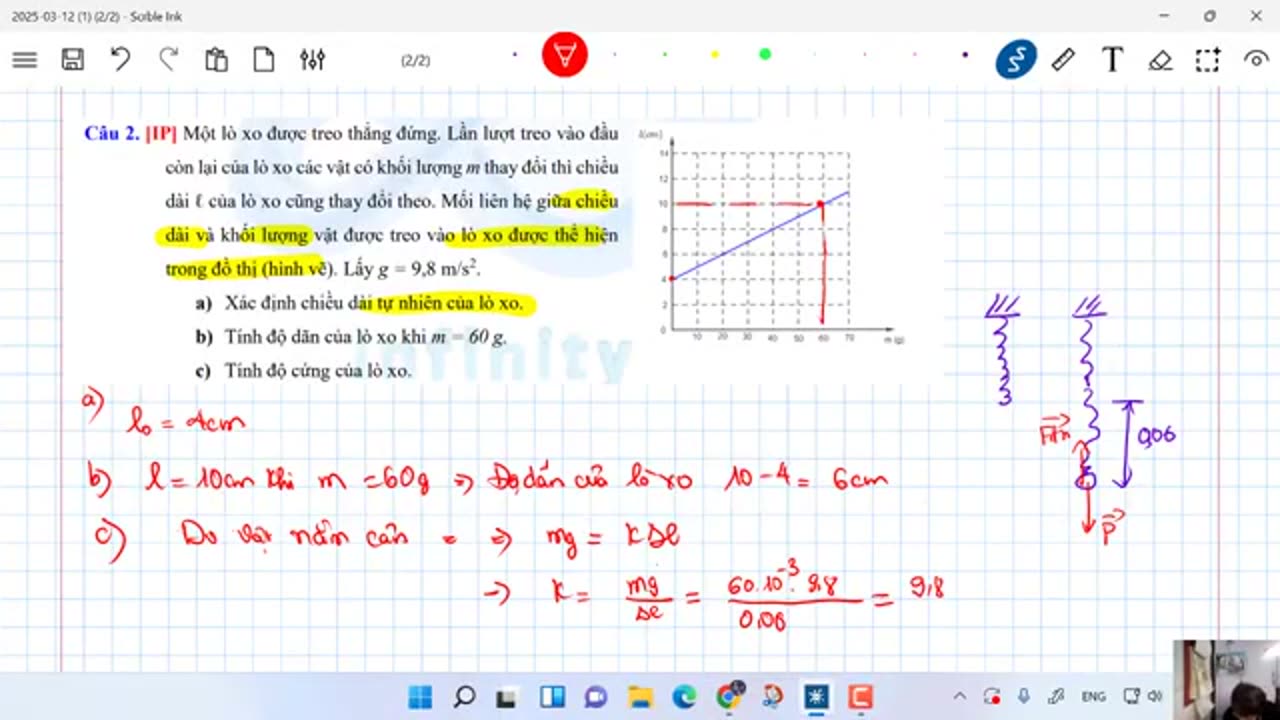 2025-03-12 (1) (2/2) - Scible Ink
(2/2)
Câu 2. [IP] Một lò xo được treo thẳng đứng. Lần lượt treo vào đầu
còn lại của lò xo các vật có khối lượng m thay đổi thì chiều
dài ℓ của lò xo cũng thay đổi theo. Mối liên hệ giữa chiều
dài và khối lượng vật được treo vào lò xo được thể hiện
trong đồ thị (hình vẽ). Lấy g = 9,8 m/s².
a) Xác định chiều dài tự nhiên của lò xo.
b) Tính độ dãn của lò xo khi m = 60 g.
c) Tính độ cứng của lò xo.
14
12
10
8
6
4
2
0
10 20 30 40 50 60 70
m (g)
infinity
a)
l₀ = 4cm
b) l = 10cm khi m = 60g => Độ dãn của lò xo 10 - 4 = 6cm
c) Do vật nằm cân = => mg = KΔl
-> K = mg/Δl = 60.10⁻³.9,8/0,06 = 9,8
0,06
P
ENG